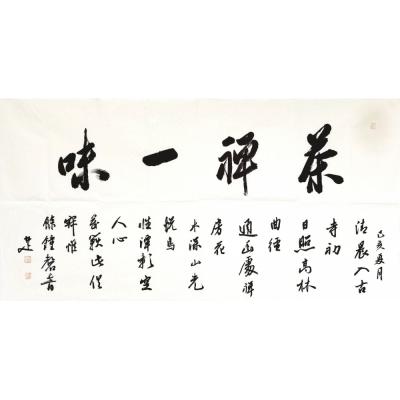 茶禅一味
己亥夏月
清晨入古
寺初
日照高林
曲径
通幽處禅
房花
木深山光
悦鳥
性潭影空
人心
萬籟此俱
寂惟
餘鐘磬音